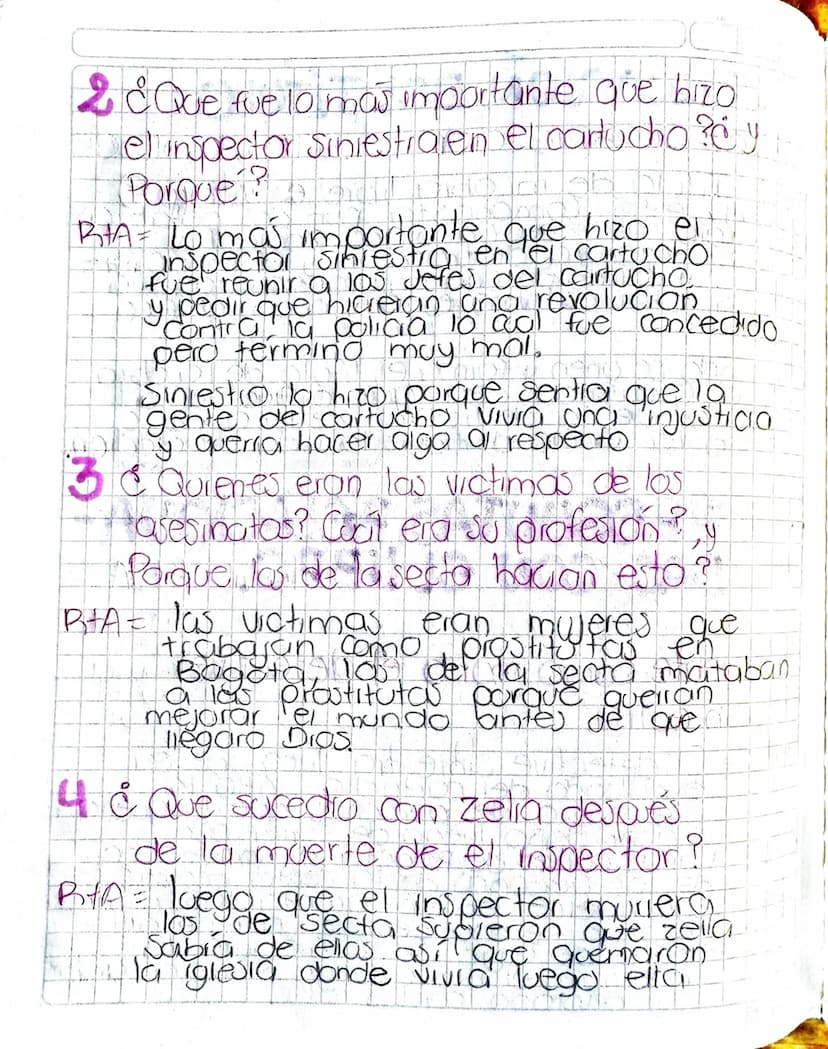 2 ¿Que fue lo más importante que hizo
el inspector siniestra en el cartucho? ¿y
Porqué?
R+A= Lo más importante que hizo el
inspector siniestra en el cartucho
fue reunir a los Jefes del cartucho
y pedir que hicieran una revolución
contra la policia lo cual fue concedido
pero termino muy mal.
Siniestro lo hizo porque sentia que la
gente del cartucho vivia una injusticia
y querria hacer algo al respecto
3 ¿Quienes eran las victimas de los
asesinatos? Cuál era su profesión?, y
Porque los de la secta hacian esto?
R+A= las victimas eran mujeres que
trabajan como prostitutas en
Bogota, las del la secta mataban
a las prostitutas porque querrian
mejorar el mundo antes de que
llegaro Dios.
4 ¿Que sucedio con zelia después
de la muerte de el inspector?
R+A= luego que el inspector muriera
los de secta supieron que zelia
sabia de ellos así que quemaron
la iglesia donde vivia luego ella